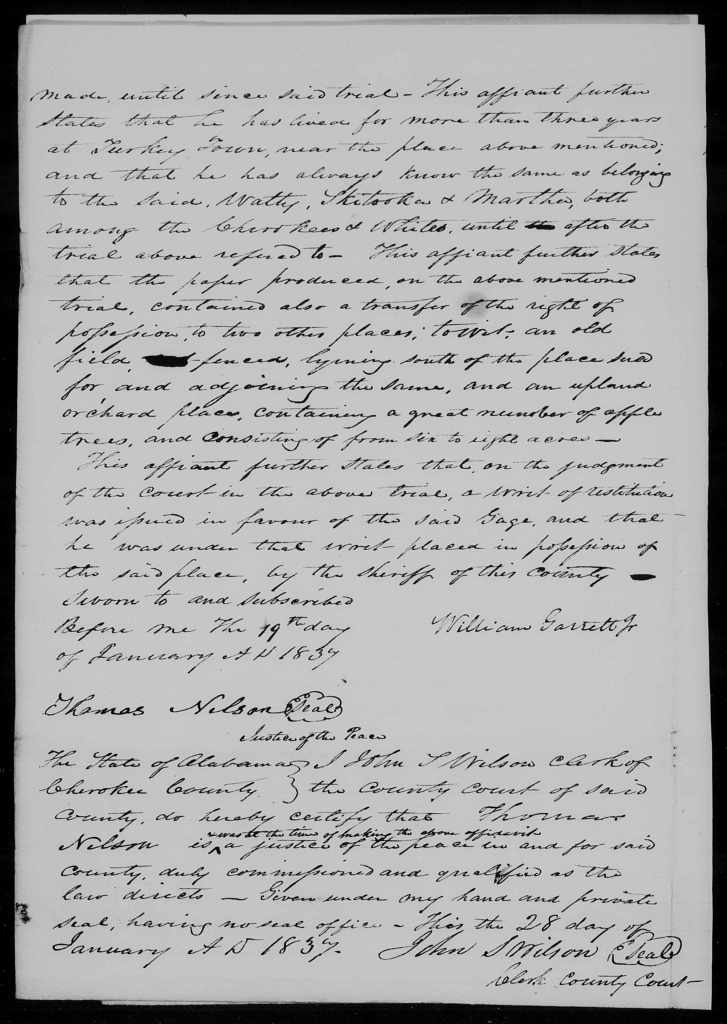 made, until since said trial – This affiant further
States that he has lived for more than three years
at Turkey Town, near the place above mentioned;
and that he has always know the same as belonging
to the said, Watty, Skitooka & Martha, both
among the Cherokees & Whites, until after the
trial above refered to – This affiant further states
that the paper produced, on the above mentioned
trial, contained also a transfer of the right of
possession, to two other places; towit; an old
field, fenced, lyming south of the place sued
for, and adjoining the same, and an upland
orchard place, containing a great number of apple
trees, and consisting of from six to eight acres –
This affiant further states that, on the judgment
of the court in the above trial, a writ of restitution
was issued in favour of the said Gage, and that
he was under that writ placed in possession of
the said place, by the sheriff of this County –
Sworn to and subscribed
Before me The 19th day
of January A D 1837
William Garrett Jr
Thomas Nelson Seal
Justice of the Peace
The State of Alabama } I John S Wilson Clerk of
Cherokee County } the County Court of said
County, do hereby certify that Thomas
& was at the time of making the above affidavit
Nelson is ^ a justice of the peace in and for said
county, duly commissioned and qualified as the
law directs – Given under my hand and private
seal, having no seal office – This the 28 day of
January A D 1837. John S Wilson Seal
Clerk County Court –